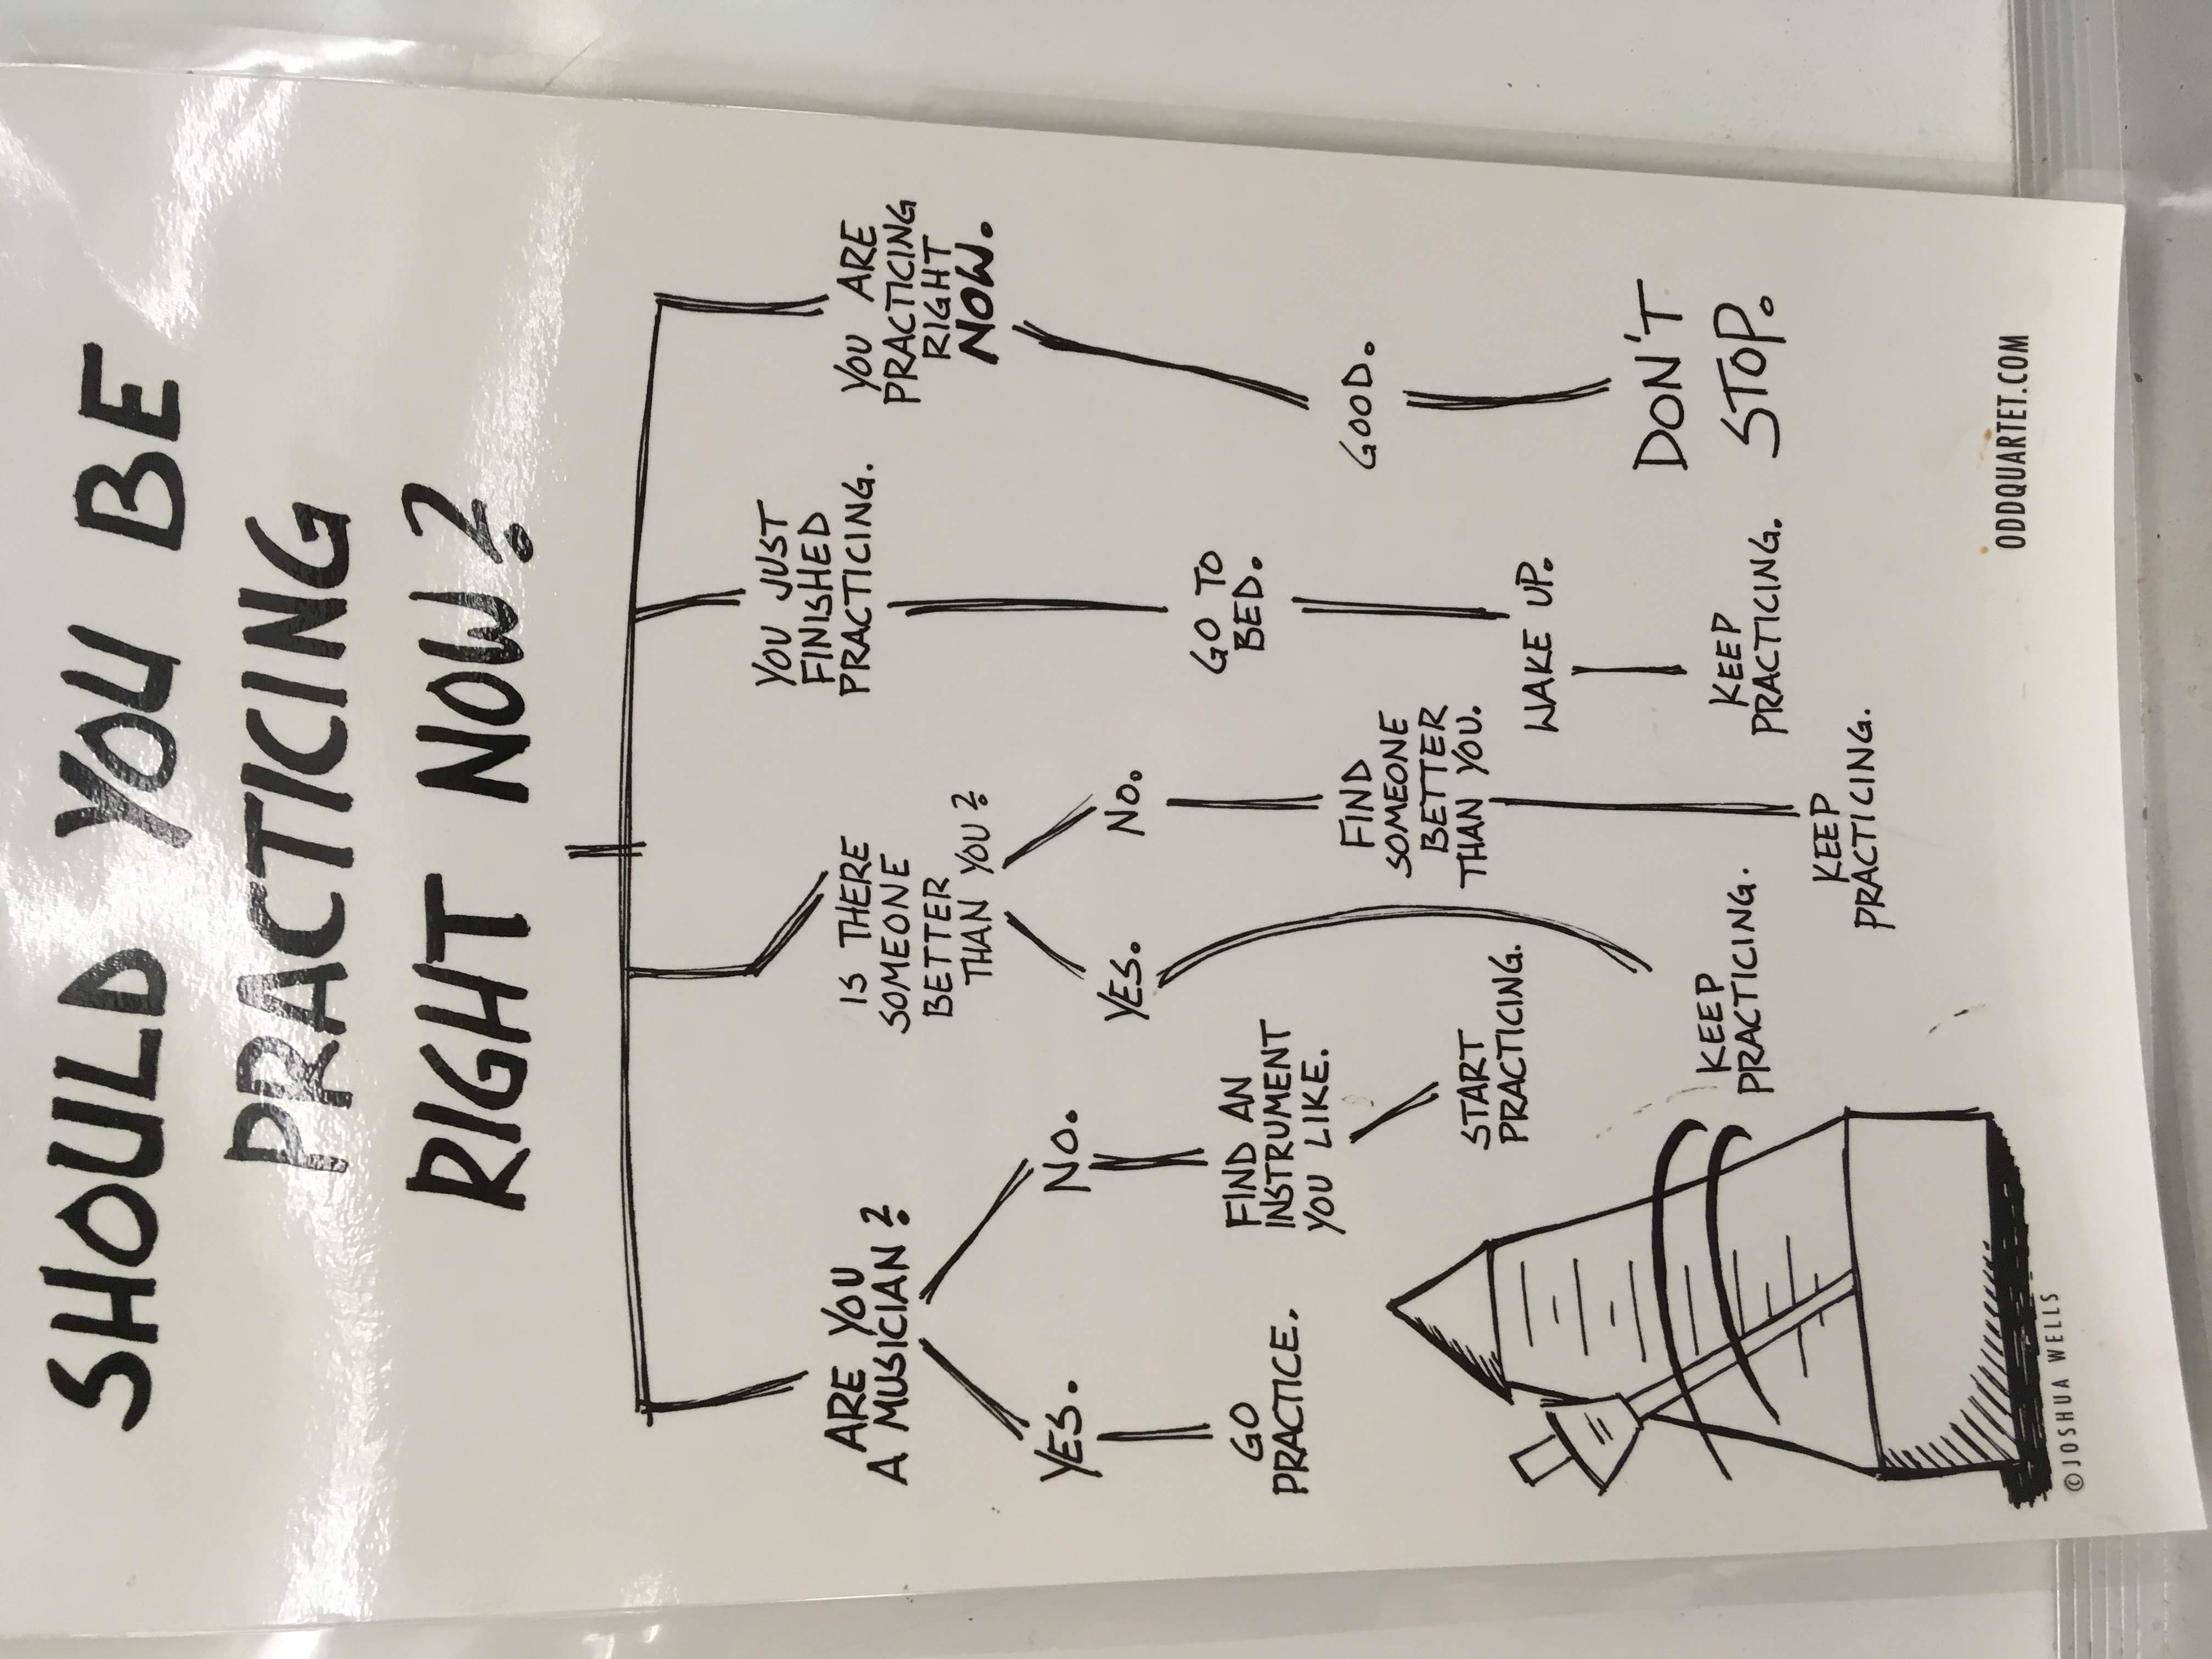 SHOULD YOU BE
PRACTICING
RIGHT NOW?
ARE YOU
A MUSICIAN?
YES.
GO
PRACTICE.
NO.
FIND AN
INSTRUMENT
YOU LIKE.
START
PRACTICING.
IS THERE
SOMEONE
BETTER
THAN YOU?
YES.
KEEP
PRACTICING.
NO.
FIND
SOMEONE
BETTER
THAN YOU.
KEEP
PRACTICING.
YOU JUST
FINISHED
PRACTICING.
GO TO
BED.
WAKE UP.
KEEP
PRACTICING.
YOU ARE
PRACTICING
RIGHT
NOW.
GOOD.
DON'T
STOP.
©JOSHUA WELLS
ODDQUARTET.COM